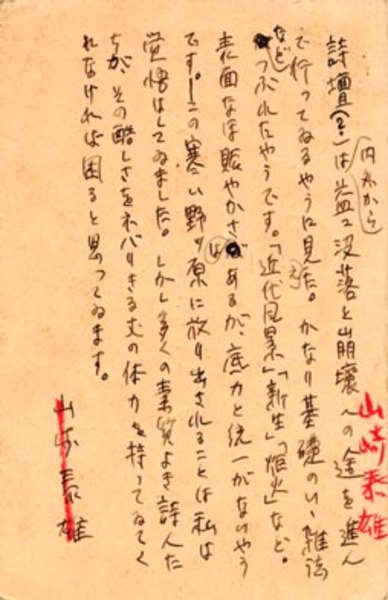 詩壇(?)は内部から益々没落と崩壊への途を進ん
で行ってゐるやうに見えた。かなり基礎のいゝ雑誌
などつぶれたやうです。「近代風景」「新生」「炬火」など。
表面なほ賑やかさはあるが、底力と統一がないやう
です。この寒い野ッ原に放り出されることは私は
覚悟はしてゐました。しかし多くの素質よき詩人た
ちが、その酷しさをネバりきる丈の体力を持ってゐてく
れなければ困ると思ってゐます。
山崎泰雄
山崎泰雄